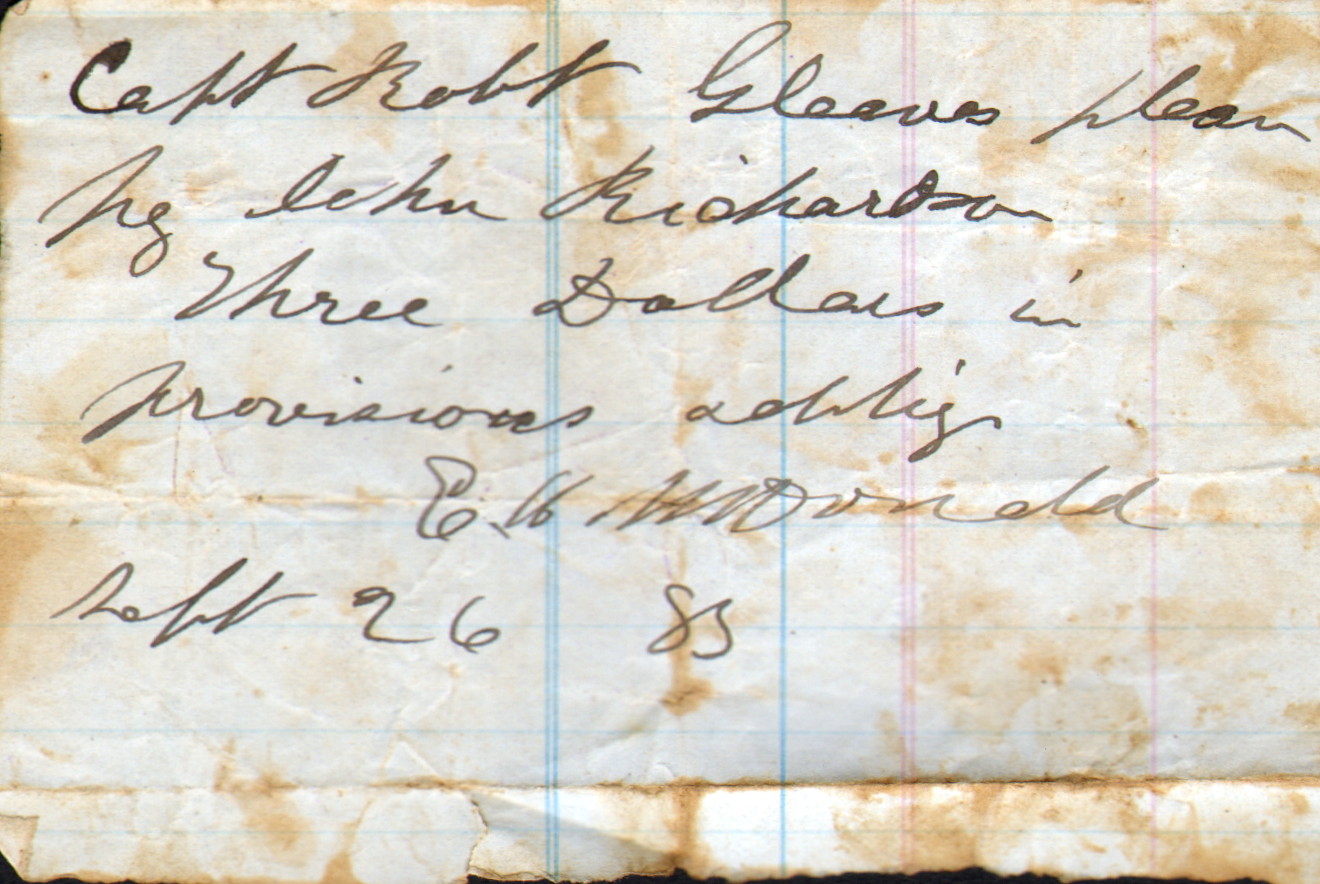 Capt Robt Gleaves pleas
pay John Richardson
Three Dollars in
provisions & oblige
E. McDonald
Sept 26 85